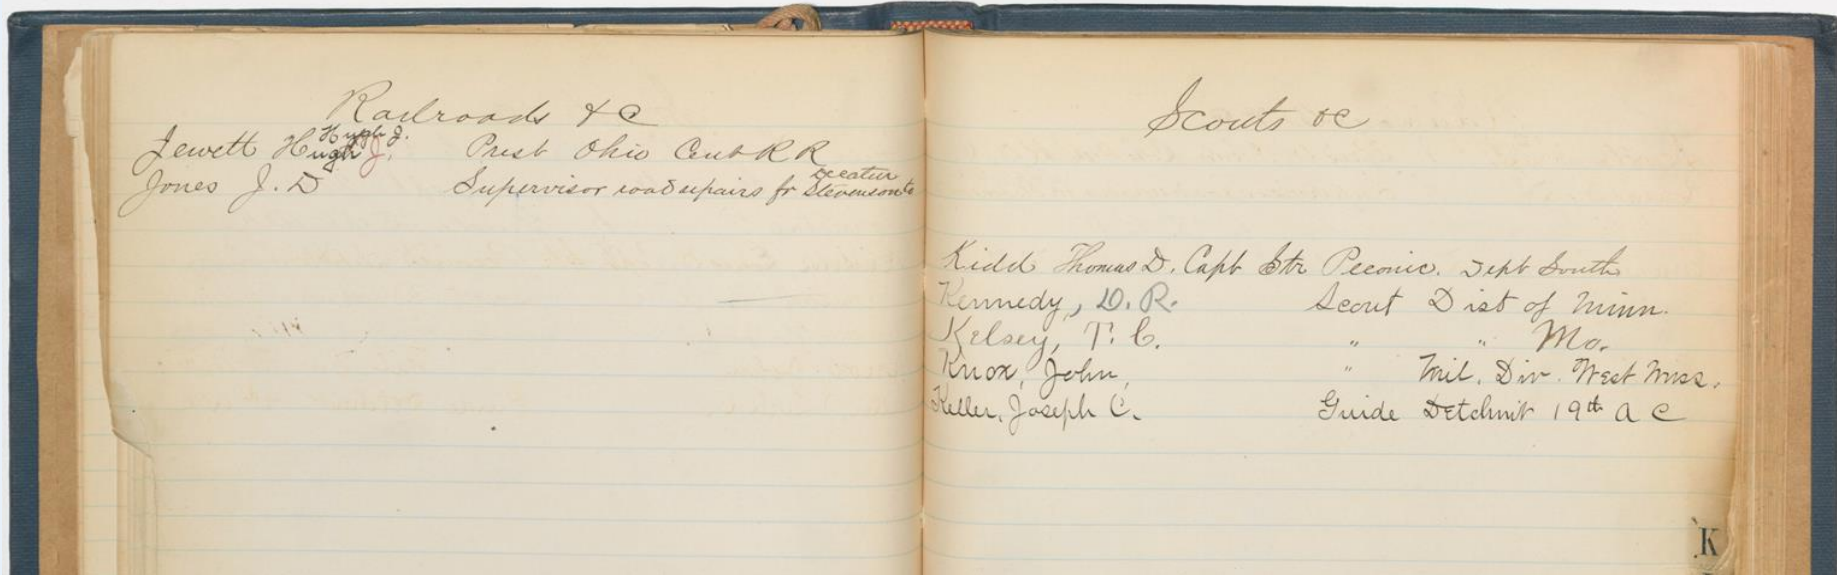 Railroads & C
Hugh J.
Jewett Hugh J. Prest Ohio Cent R R
Decatur
Jones J. D Supervisor road repairs fr Stevenson to
Scouts & C
Kidd Thomas D. Capt Str Peconic. Dept South
Kennedy, D. R. Scout Dist of Minn.
Kelsey, T. C. " " Mo.
Knox, John, " Mil. Div. West Miss.
Keller, Joseph C. Guide Detchmt 19th A C
K